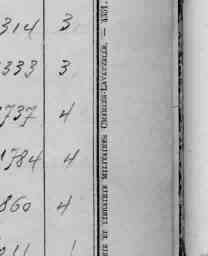 314 3
333 3
737 4
1784 4
860 4
RIE ET LIBRAIRIE MILITAIRES CHARLES-LAVAUZELLE. —